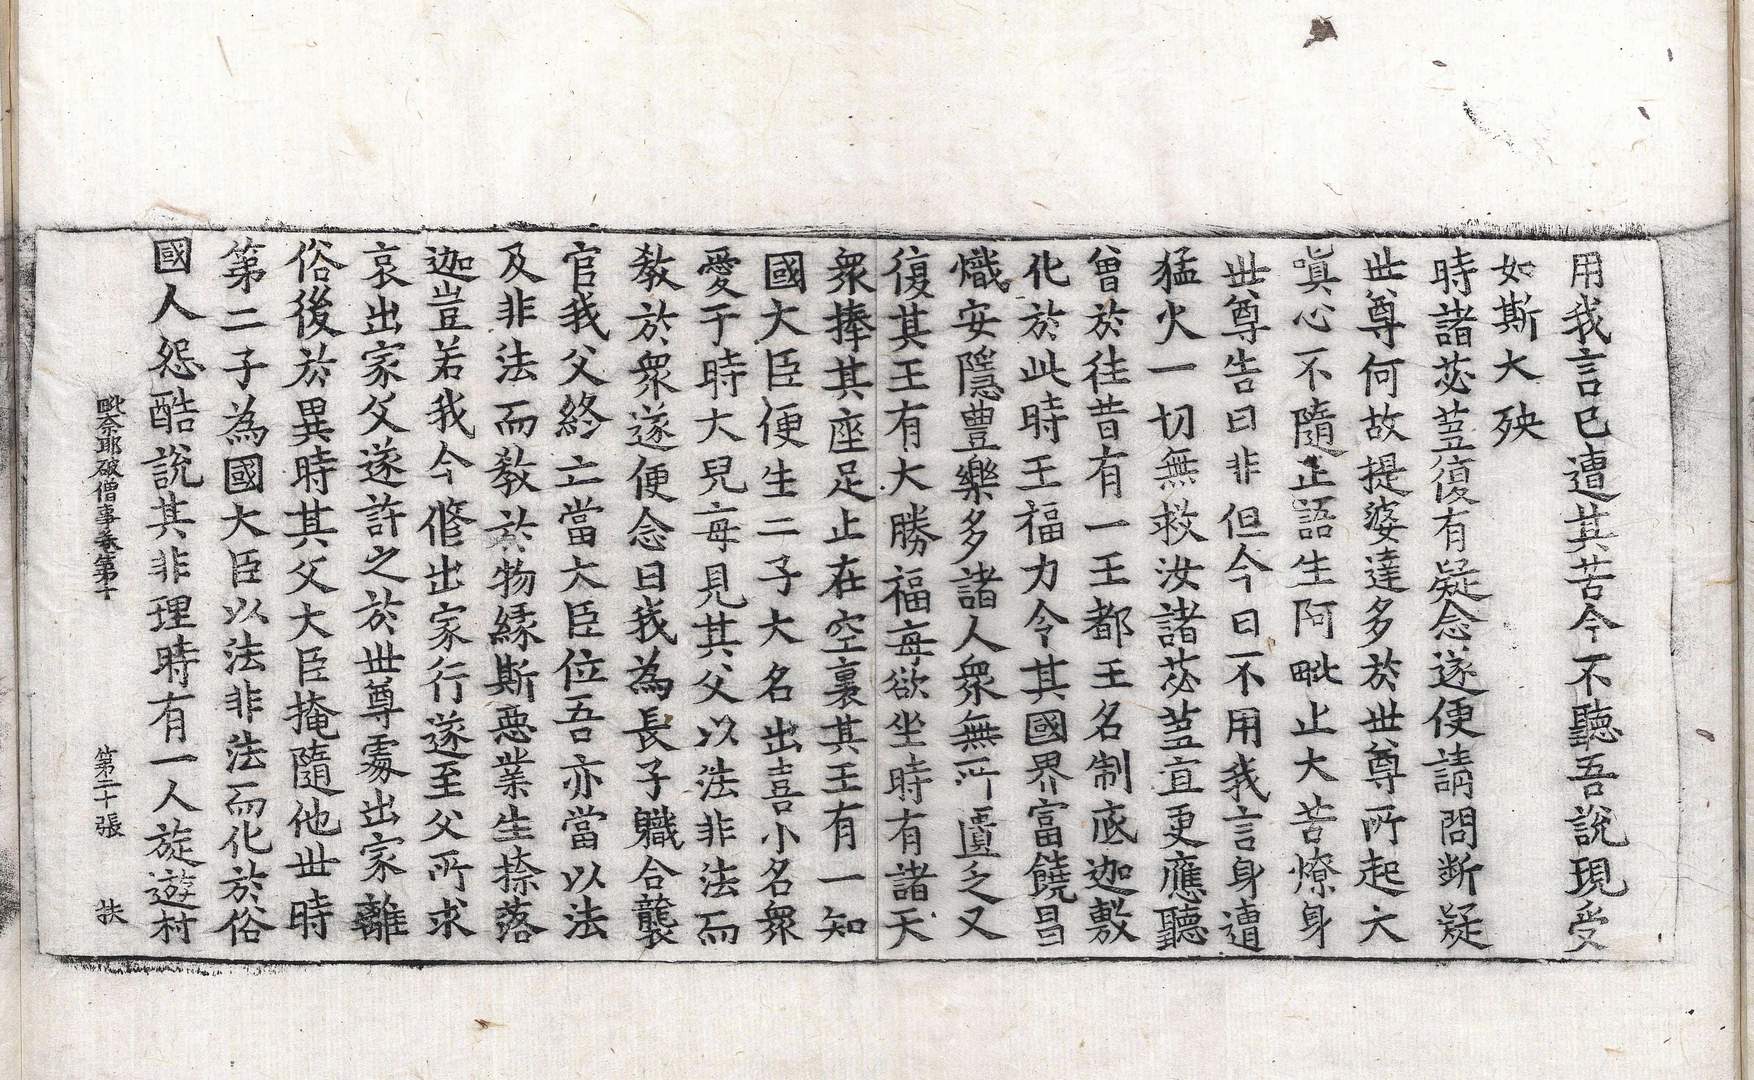 用我言已遭其苦今不聽吾說現受
如斯大殃
時諸苾蒭復有疑念遂便請問斷疑
世尊何故提婆達多於世尊所起大
嗔心不隨正語生阿毗止大苦燎身
世尊告曰非但今日不用我言身遭
猛火一切無救汝諸苾蒭宜更應聽
曾於往昔有一王都王名制底迦敷
化於此時王福力令其國界富饒昌
熾安隱豊樂多諸人衆無所匱乏又
復其王有大勝福每欲坐時有諸天
衆捧其座足止在空裏其王有一知
國大臣便生二子大名出喜小名衆
愛于時大兒每見其父以法非法而
教於衆遂便念曰我為長子職合襲
官我父終亡當大臣位吾亦當以法
及非法而教於物緣斯惡業生捺落
迦豈若我今修出家行遂至父所求
哀出家父遂許之於世尊處出家離
俗後於異時其父大臣掩隨他世時
第二子為國大臣以法非法而化於俗
國人怨酷說其非理時有一人旋遊村
毗奈耶破僧事卷第十 第二十張 扶